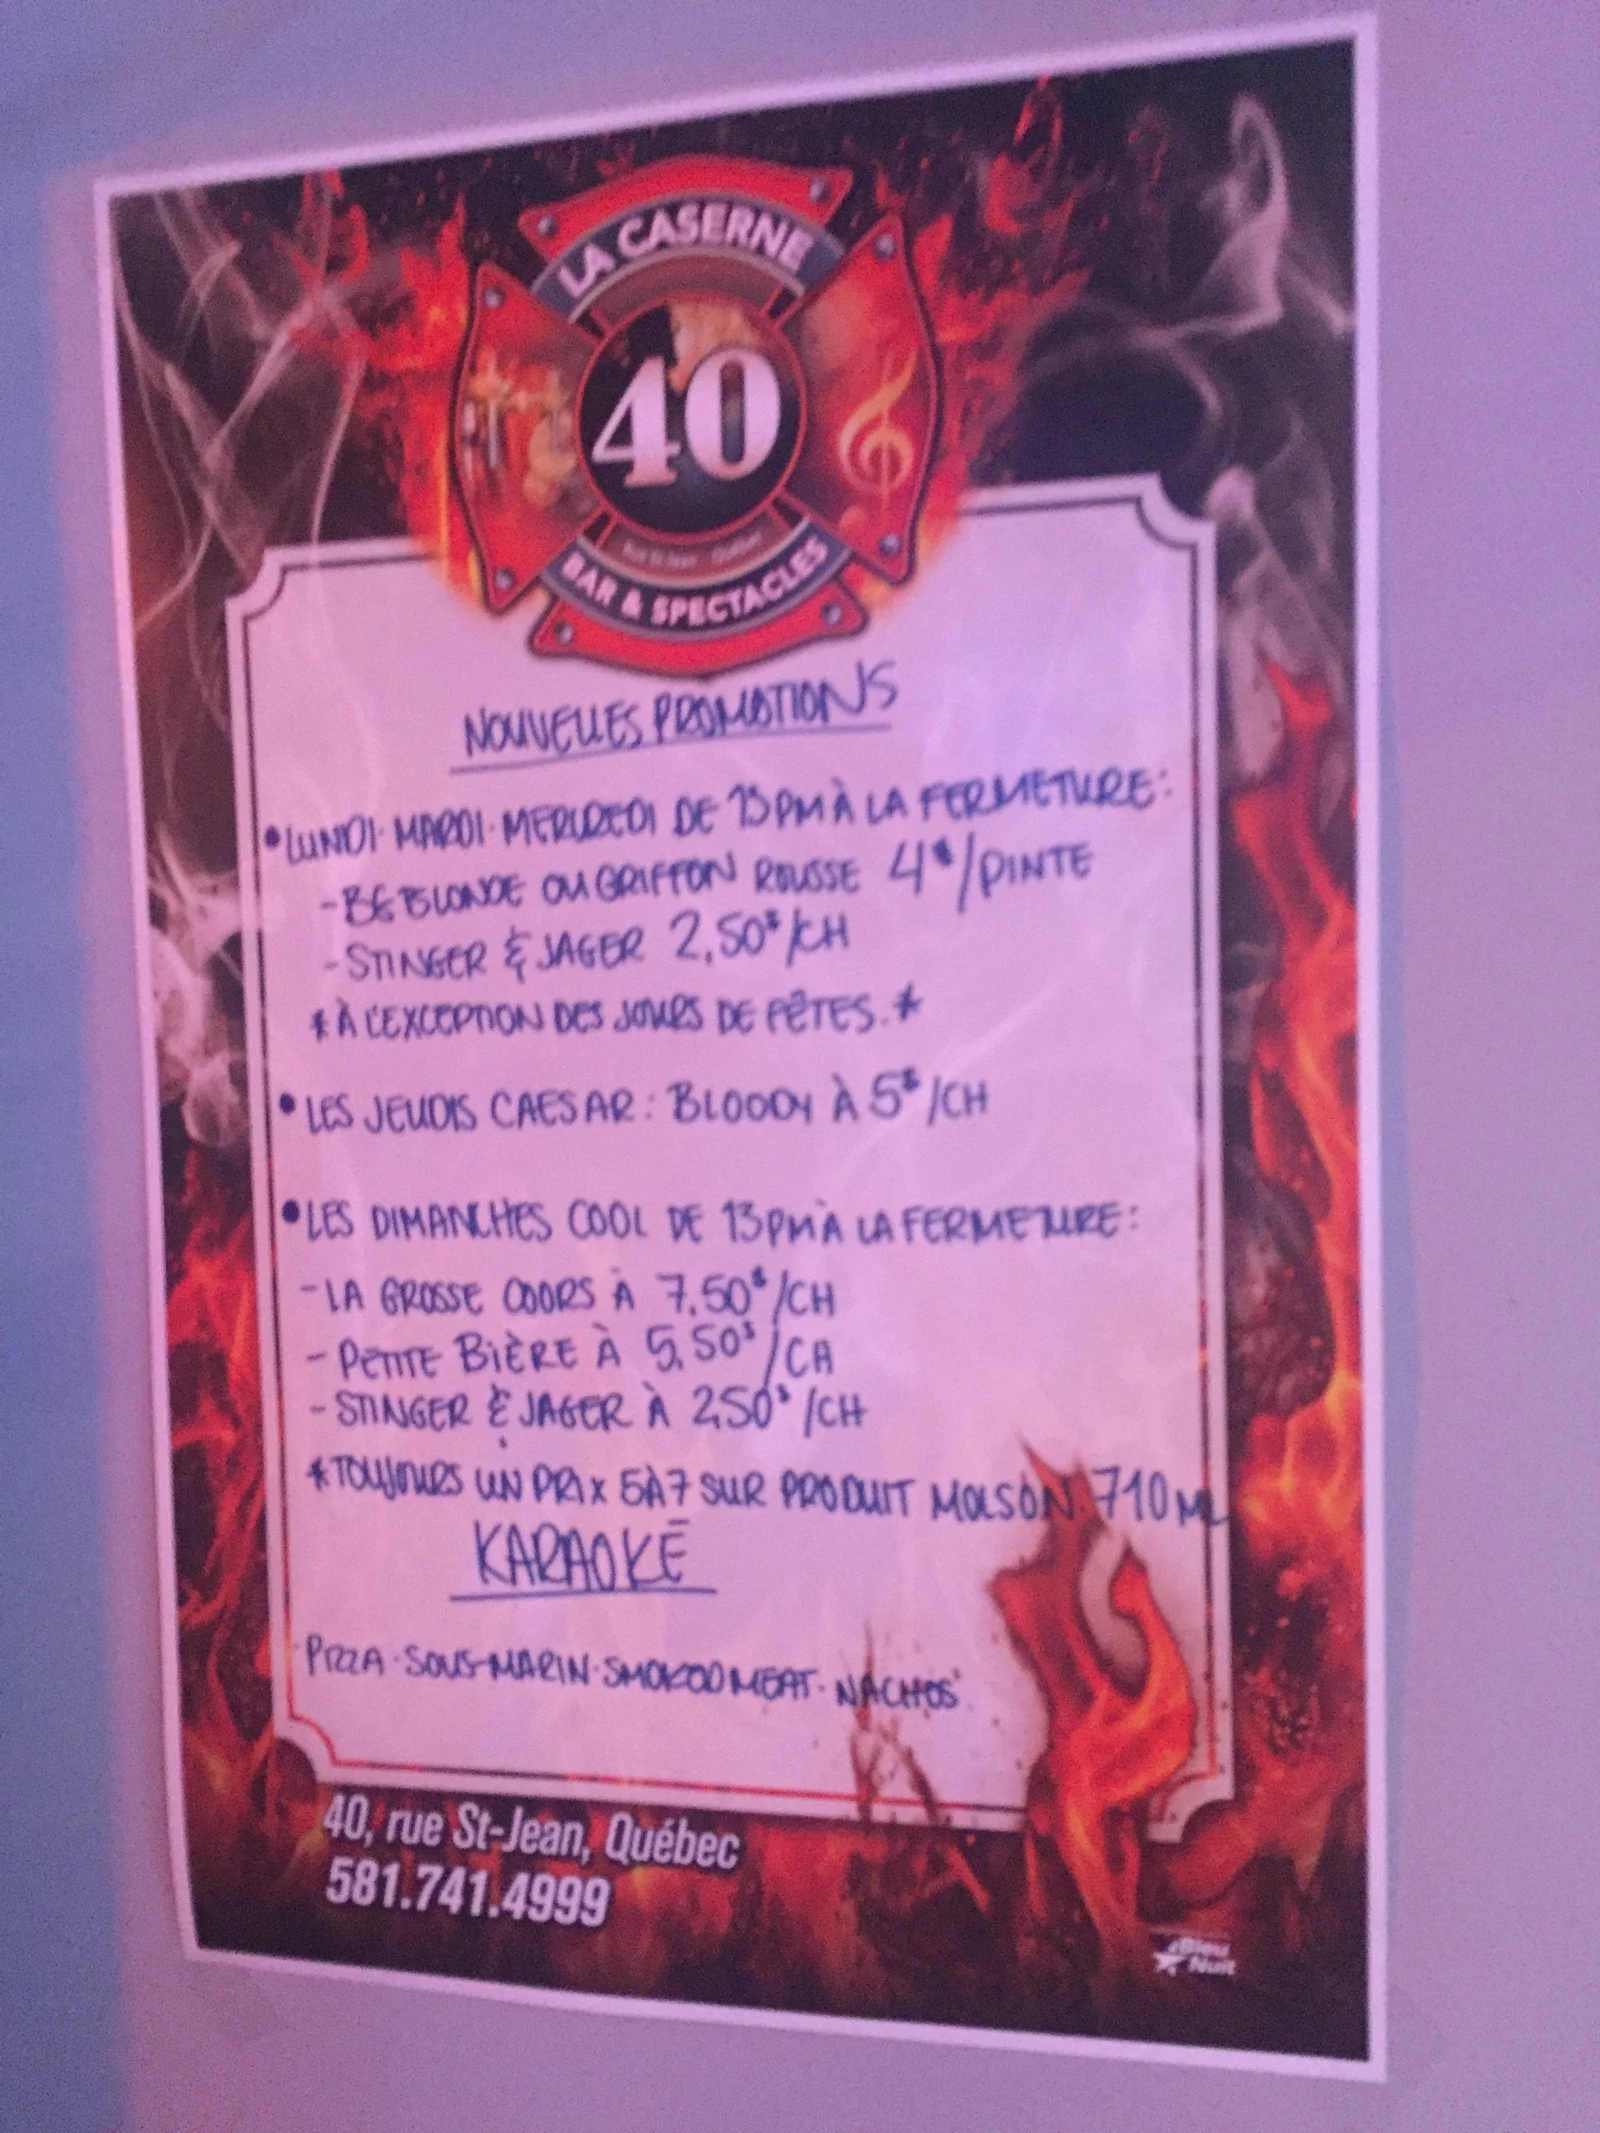 LA CASERNE
40
BAR & SPECTACLES
NOUVELLES PROMOTIONS
• LUNDI · MARDI · MERCREDI DE 13PM À LA FERMETURE:
- BG BLONDE OU GRIFFON ROUSSE 4$/PINTE
- STINGER & JAGER 2,50$/CH
* À L'EXCEPTION DES JOURS DE FÊTES. *
• LES JEUDIS CAESAR: BLOODY À 5$/CH
• LES DIMANCHES COOL DE 13PM À LA FERMETURE:
- LA GROSSE COORS À 7.50$/CH
- PETITE BIÈRE À 5,50$/CH
- STINGER & JAGER À 2,50$/CH
* TOUJOURS UN PRIX 5À7 SUR PRODUIT MOLSON 710 ML
KARAOKÉ
PIZZA · SOUS-MARIN · SMOKOD MEAT · NACHOS
40, rue St-Jean, Québec
581.741.4999
Bleu
Nuit